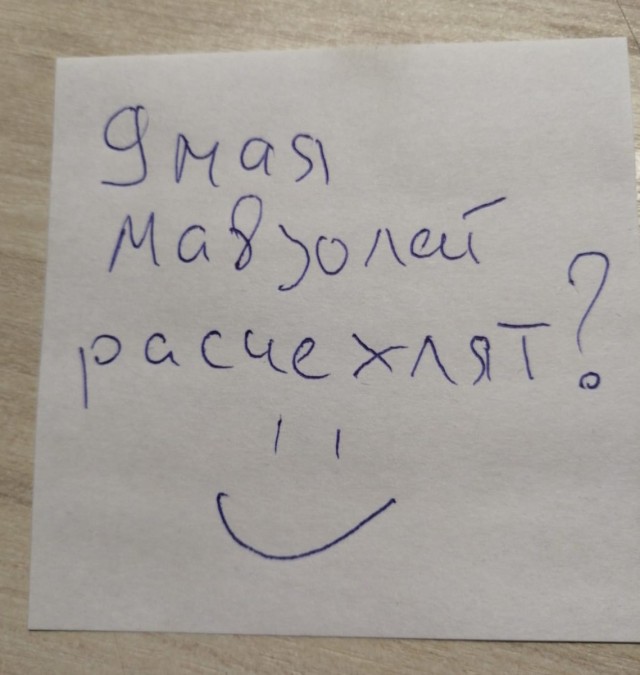 9 мая
мавзолей
расчехлят?